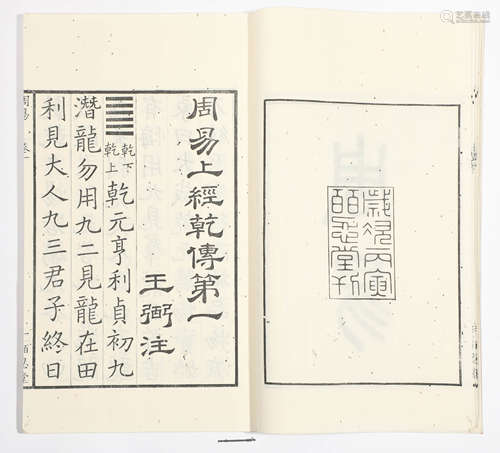 歲次丙寅
皕忍堂刊
周易上經乾傳第一
王弼注
䷀乾下乾上乾元亨利貞初九
潛龍勿用九二見龍在田
利見大人九三君子終日
周易 卷一
一 皕忍堂